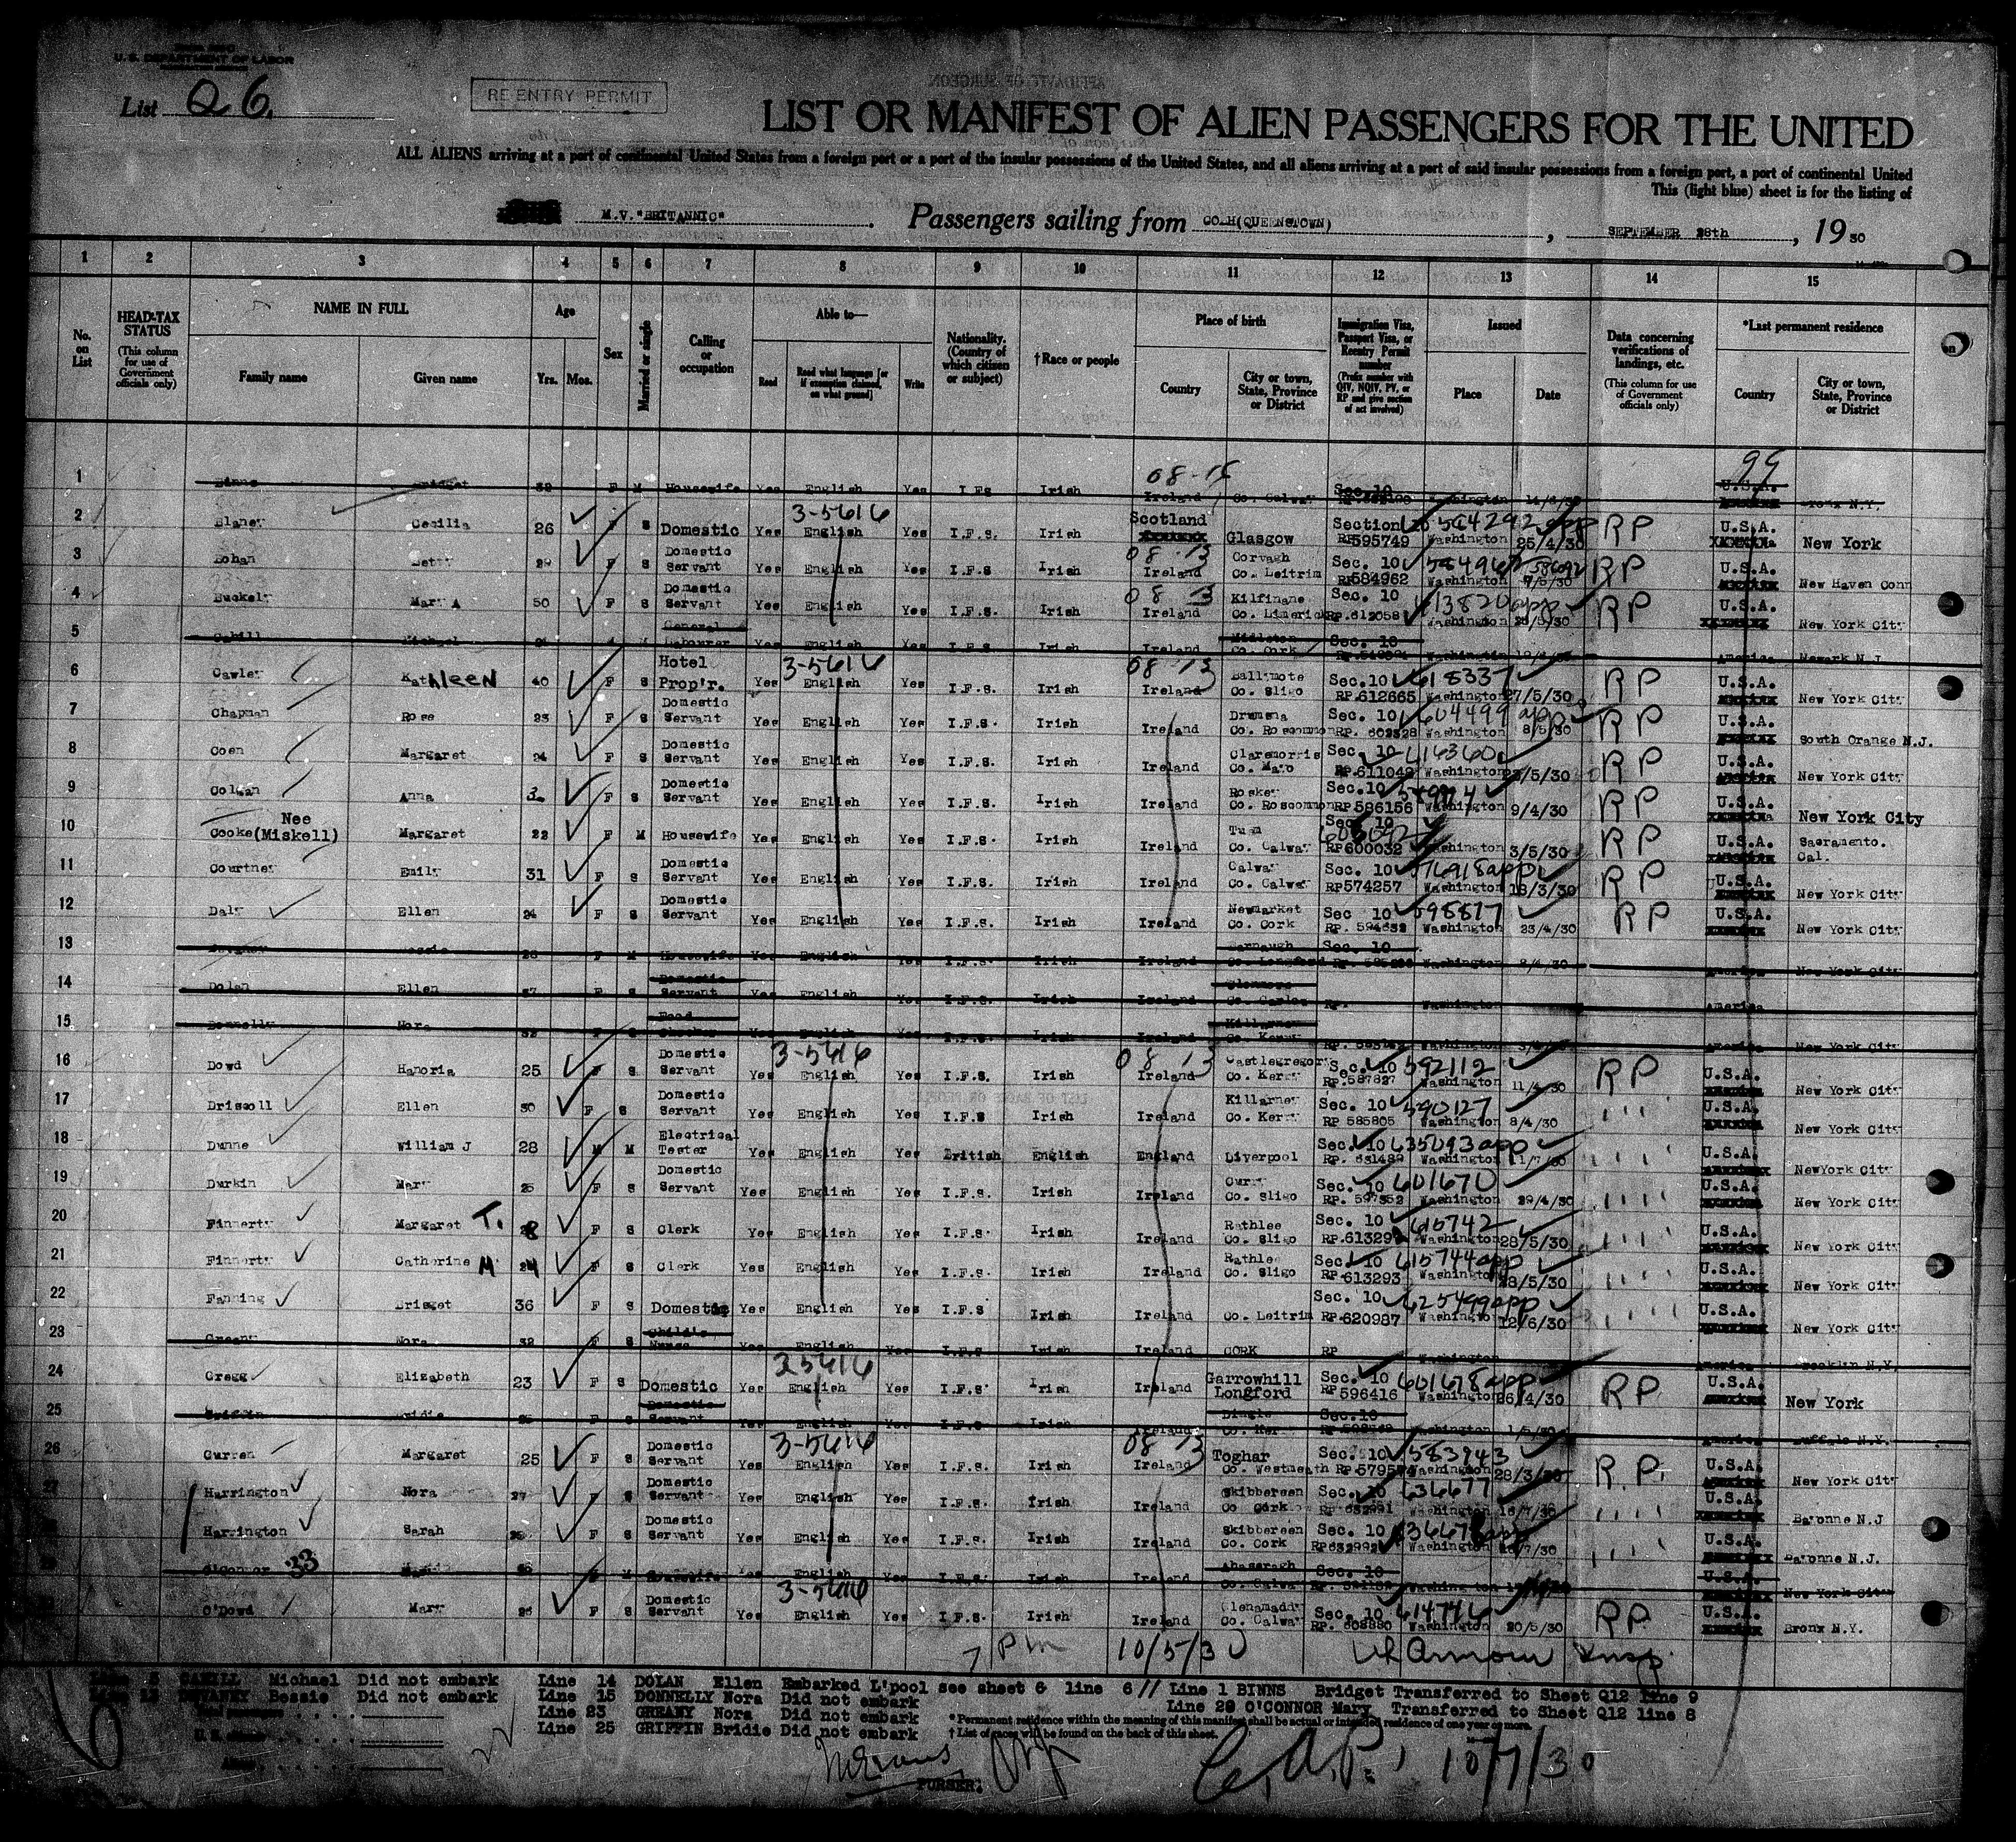 U. S. DEPARTMENT OF LABOR
List Q 6.
RE ENTRY PERMIT
LIST OR MANIFEST OF ALIEN PASSENGERS FOR THE UNITED
ALL ALIENS arriving at a port of continental United States from a foreign port or a port of the insular possessions of the United States, and all aliens arriving at a port of said insular possessions from a foreign port, a port of continental United
This (light blue) sheet is for the listing of
M.V."BRITANNIC" Passengers sailing from COBH(QUEENSTOWN), SEPTEMBER 28th, 19 30
1 2 3 4 5 6 7 8 9 10 11 12 13 14 15
No. on List
HEAD-TAX STATUS (This column for use of Government officials only)
NAME IN FULL Family name Given name
Age Yrs. Mos.
Sex
Married or single
Calling or occupation
Able to— Read Read what language [or if exemption claimed, on what ground] Write
Nationality. (Country of which citizen or subject)
†Race or people
Place of birth Country City or town, State, Province or District
Immigration Visa, Passport Visa, or Reentry Permit number (Prefix number with QIV, NQIV, PV, or RP and give section of act involved)
Issued Place Date
Data concerning verifications of landings, etc. (This column for use of Government officials only)
*Last permanent residence Country City or town, State, Province or District
1 Binns Bridget F M Housewife Yes English Yes I.F.S Irish 08-15 Ireland Co. Galway Sec.10 Washington 99 U.S.A. Bronx N.Y.
2 Blaney Cecilia 26 F S Domestic Yes 3-5616 English Yes I.F.S. Irish Scotland Glasgow Section 10 594292 app RP595749 Washington 25/4/30 RP U.S.A. New York
3 Bohan Betty 29 F S Domestic Servant Yes English Yes I.F.S Irish 08-13 Ireland Corvagh Co. Leitrim Sec. 10 RP584962 Washington RP U.S.A. New Haven Conn
4 Buckely Mary A 50 F S Domestic Servant Yes English Yes I.F.S. Irish 08 13 Ireland Kilfinane Co. Limerick Sec. 10 613820 app RP.612058 Washington RP U.S.A. New York City
5 Cahill Michael M General Labourer Yes English Yes I.F.S Irish Ireland Midleton Co. Cork Sec. 10 Washington America Newark N.J
6 Cawley Kathleen 40 F S Hotel Prop'r. Yes 3-5616 English Yes I.F.S. Irish 08 13 Ireland Ballymote Co. Sligo Sec.10 618337 RP.612665 Washington 27/5/30 RP U.S.A. New York City
7 Chapman Rose 23 F S Domestic Servant Yes English Yes I.F.S. Irish Ireland Drumsna Co. Roscommon Sec. 10 604499 app RP. 602328 Washington 8/5/30 RP U.S.A. South Orange N.J.
8 Coen Margaret 24 F S Domestic Servant Yes English Yes I.F.S. Irish Ireland Claremorris Co. Mayo Sec. 10 616360 RP.611042 Washington RP U.S.A. New York City
9 Colgan Anna F S Domestic Servant Yes English Yes I.F.S. Irish Ireland Roskey Co. Roscommon Sec.10 RP586156 Washington 9/4/30 RP U.S.A. New York City
10 Nee Cooke(Miskell) Margaret 22 F M Housewife Yes English Yes I.F.S. Irish Ireland Tuam Co. Galway Sec. 10 RP600032 Washington 3/5/30 RP U.S.A. Sacramento. Cal.
11 Courtney Emily 31 F S Domestic Servant Yes English Yes I.F.S. Irish Ireland Galway Co. Galway Sec. 10 576918 app RP574257 Washington 18/3/30 RP U.S.A. New York City
12 Daly Ellen 24 F S Domestic Servant Yes English Yes I.F.S. Irish Ireland Newmarket Co. Cork Sec 10 598877 RP. 594632 Washington 23/4/30 RP U.S.A. New York City
13 Devaney Bessie 28 F M Housewife Yes English Yes I.F.S. Irish Ireland Co. Longford Sec. 10 Washington 8/4/30 America New York City
14 Dolan Ellen F S Domestic Servant Yes English Yes I.F.S. Irish Ireland RP. Washington America
15 Donnelly Nora F S Food Yes English Yes I.F.S. Irish Ireland Killarney Co. Kerry Washington America New York City
16 Dowd Hanoria 25 F S Domestic Servant Yes 3-5616 English Yes I.F.S. Irish 08 13 Ireland Castlegregory Co. Kerry Sec. 10 592112 RP.587827 Washington 11/4/30 RP U.S.A. New York City
17 Driscoll Ellen 30 F S Domestic Servant Yes English Yes I.F.S Irish Ireland Killarney Co. Kerry Sec. 10 590127 RP 585805 Washington 8/4/30 " " U.S.A. New York City
18 Dunne William J 28 M M Electrical Tester Yes English Yes British English England Liverpool Sec. 10 635093 app RP. 631489 Washington 11/7/30 " " U.S.A. NewYork City
19 Durkin Mary 25 F S Domestic Servant Yes English Yes I.F.S. Irish Ireland Curry Co. Sligo Sec. 10 601670 RP. 597352 Washington 29/4/30 " " U.S.A. New York City
20 Finnerty Margaret T. F S Clerk Yes English Yes I.F.S. Irish Ireland Rathlee Co. Sligo Sec. 10 615742 RP.61329 Washington 28/5/30 " " U.S.A. New York City
21 Finnerty Catherine M 24 F S Clerk Yes English Yes I.F.S. Irish Ireland Rathlee Co. Sligo Sec. 10 615744 app RP.613293 Washington 28/5/30 " " U.S.A. New York City
22 Fanning Bridget 36 F S Domestic Yes English Yes I.F.S Irish Ireland Co. Leitrim Sec. 10 625499 app RP.620987 Washington 12/6/30 " " U.S.A. New York City
23 Greany Nora 32 F S Child's Nurse Yes English Yes I.F.S Irish Ireland CORK RP Washington America Brooklyn N.Y.
24 Gregg Elizabeth 23 F S Domestic Yes 35616 English Yes I.F.S. Irish Ireland Garrowhill Longford Sec. 10 601678 app RP596416 Washington 26/4/30 RP U.S.A. New York
25 Griffin Bridie F S Domestic Servant Yes English Yes I.F.S Irish Ireland Dingle Co. Ker Sec.10 Washington 1/5/30 America Buffalo N.Y.
26 Gurren Margaret 25 F S Domestic Servant Yes 3-5616 English Yes I.F.S. Irish 08 13 Ireland Toghar Co. Westmeath Sec. 10 583943 Washington 28/3/30 R.P. U.S.A. New York City
27 Harrington Nora 27 F S Domestic Servant Yes English Yes I.F.S. Irish Ireland Skibbereen Co Cork Sec. 10 636677 Washington " " U.S.A. Bayonne N.J
Harrington Sarah F S Domestic Servant Yes English Yes I.F.S. Irish Ireland Skibbereen Co. Cork Sec. 10 RP632992 Washington " " U.S.A. Bayonne N.J.
O'Connor 33 F M Housewife Yes English Yes I.F.S. Irish Ireland Ahascragh Co. Galway Sec. 10 Washington U.S.A. New York City
O'Dowd Mary F S Domestic Servant Yes 3-5616 English Yes I.F.S. Irish Ireland Glenamaddy Co. Galway Sec. 10 614746 RP. 608880 Washington 20/5/30 RP U.S.A. Bronx N.Y.
7 Pm 10/5/30 Insp.
Line 5 CAHILL Michael Did not embark Line 14 DOLAN Ellen Embarked L'pool see sheet 6 line 6// Line 1 BINNS Bridget Transferred to Sheet Q12 line 9
Line 13 DEVANEY Bessie Did not embark Line 15 DONNELLY Nora Did not embark Line 29 O'CONNOR Mary Transferred to Sheet Q12 line 8
Total passengers Line 23 GREANY Nora Did not embark *Permanent residence within the meaning of this manifest shall be actual or intended residence of one year or more.
U. S. citizens Line 25 GRIFFIN Bridie Did not embark †List of races will be found on the back of this sheet.
Aliens
PURSER.
10/7/30